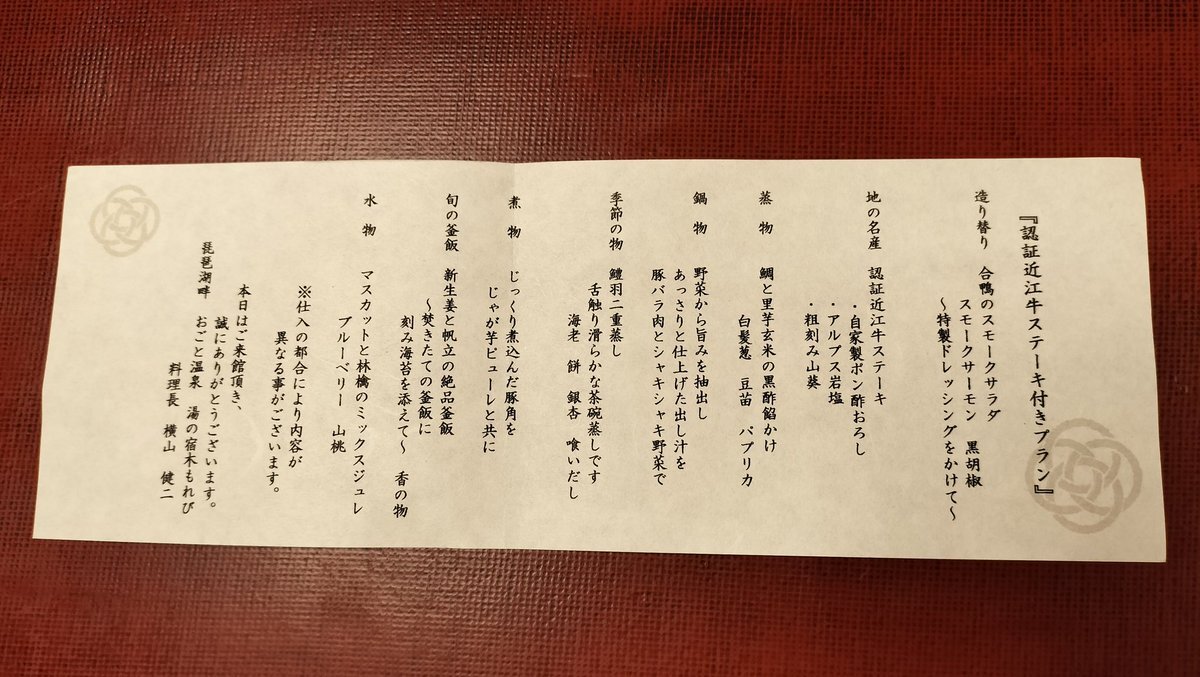 『認証近江牛ステーキ付きプラン』
造り替り　合鴨のスモークサラダ
スモークサーモン　黒胡椒
～特製ドレッシングをかけて～
地の名産　認証近江牛ステーキ
・自家製ポン酢おろし
・アルプス岩塩
・粗刻み山葵
蒸　物　鯛と里芋玄米の黒酢餡かけ
白髪葱　豆苗　パプリカ
鍋　物　野菜から旨みを抽出し
あっさりと仕上げた出し汁を
豚バラ肉とシャキシャキ野菜で
季節の物　鱧羽二重蒸し
舌触り滑らかな茶碗蒸しです
海老　餅　銀杏　喰いだし
煮　物　じっくり煮込んだ豚角を
じゃが芋ピューレと共に
旬の釜飯　新生姜と帆立の絶品釜飯
～焚きたての釜飯に
刻み海苔を添えて～　香の物
水　物　マスカットと林檎のミックスジュレ
ブルーベリー　山桃
※仕入の都合により内容が
異なる事がございます。
本日はご来館頂き、
誠にありがとうございます。
琵琶湖畔　おごと温泉　湯の宿木もれび
料理長　横山　健二